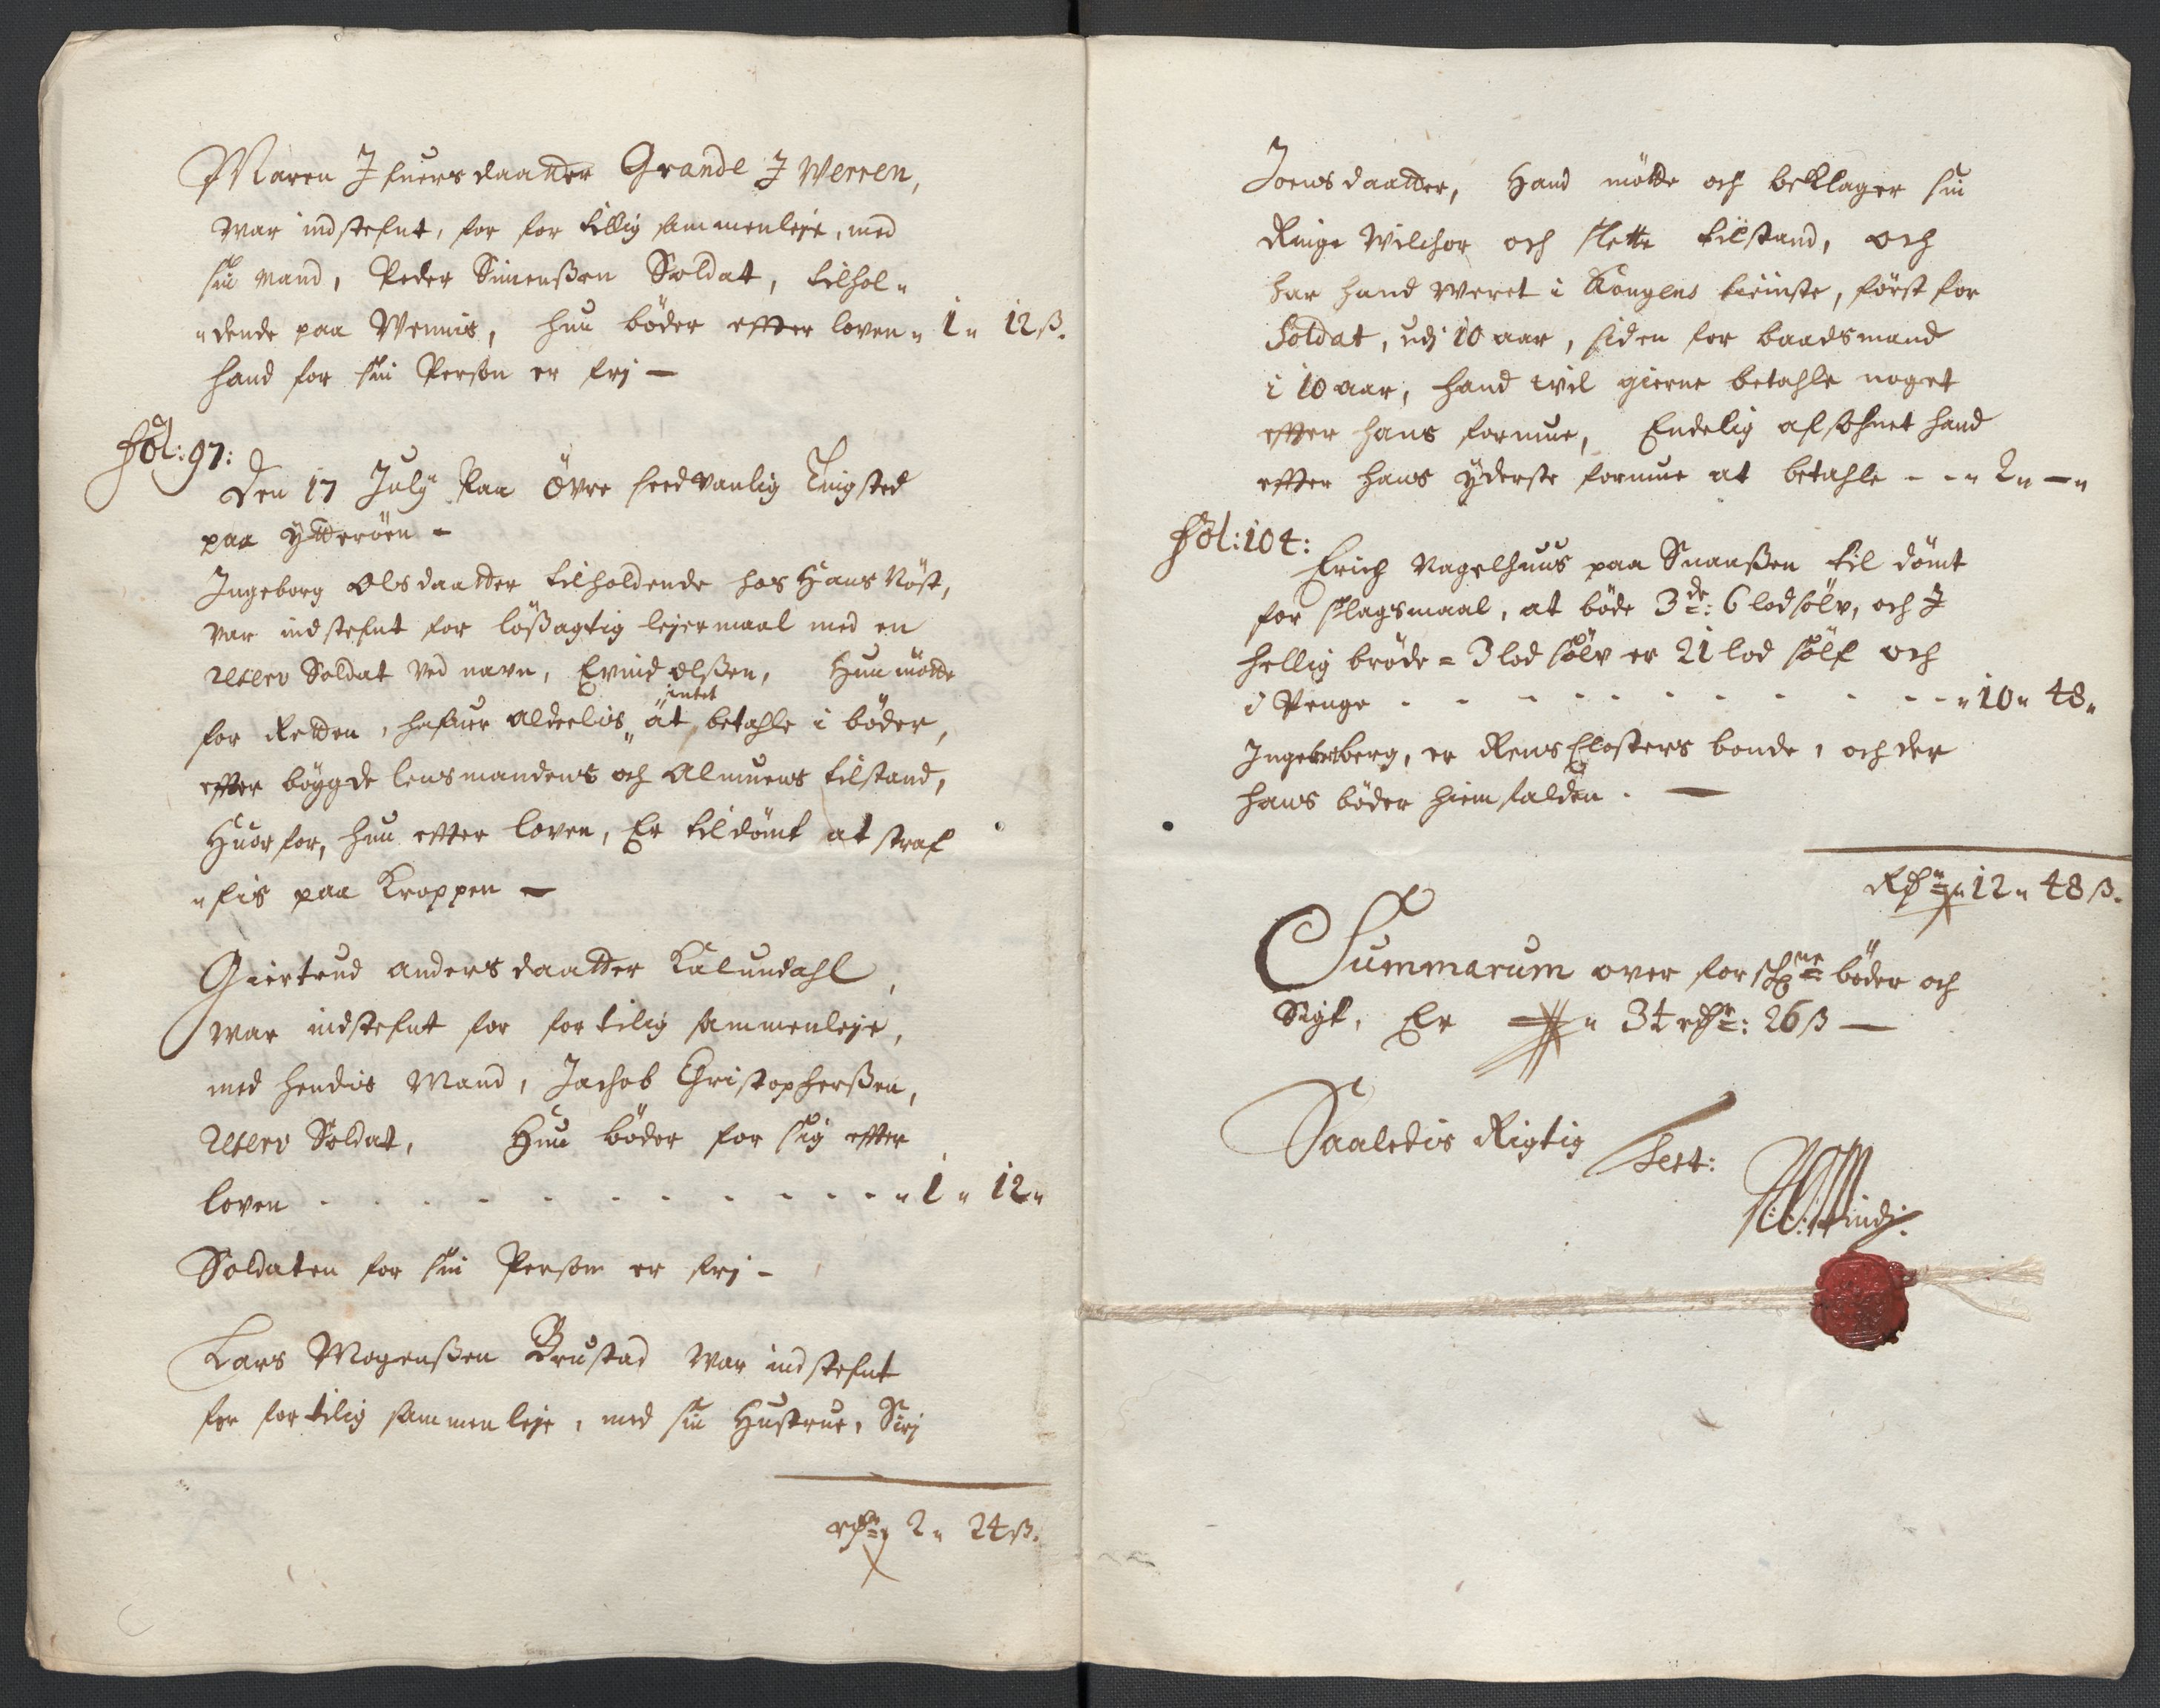 Maren Ifuersdaatter Grande J Werren,
war indstefnt, for for tillig sammenleje, med
sin mand, Peder Simenßen Soldat, tilhol„
„dende paa Wennis, hun böder effter loven „ 1 „ 12 ß.
hand for sin Person er frj —
fol: 97:
Den 17 July Paa Övre sædvanlig Tingsted
paa Ytteröen –
Ingeborg Olsdaatter tilholdende hos Hans Nöst,
var indstefnt for lößagtig lejermaal med en
Soldat ved navn, Evind olßen, Hun mötte
for Retten, hafuer aldeelis intet at betahle i böder,
effter böygde lensmandens och Almuens tilstand,
Huorfor, hun effter loven, Er tildömt at straf
„fis paa Kroppen —
Giertrud andersdaatter Kalundahl,
war indstefnt for for tilig sammenleje,
med hendis Mand, Jachob Christopherßen,
Soldat, Hun böder for sig effter
loven - - - - - - - - - - - „ 1 „ 12 „
Soldaten for sin Person er frj –
Lars Mogenßen Brustad war indstefnt
for for tilig sammenleje, med sin Hustrue, Sirj
rdr 2 „ 24 ß.
Joensdaatter, Hand mötte och beklager sin
Ringe Wilchor och slette tilstand, och
har hand weret i Kongens tieniste, först for
Soldat, udj 10 aar, siden for baadsmand
i 10 aar, hand wil gierne betahle noget
effter hans formue, Endelig afsohnet hand
effter hans yderste formue at betahle - - „ 2 „ — „
fol: 104:
Erich Nagelhuus paa Snaaßen til dömt
for slagsmaal, at böde 3de: 6 lod sölv, och J
hellig bröde = 3 lod sölv er 21 lod sölf och
i Penge - - - - - - - - - - - „ 10 „ 48 „
er Rens Closters bonde, och der
hans böder hiemfalden. —
Rdr „ 12 „ 48 ß.
Summarum over forschrne böder och
Sigt, Er „ 34 rdr: 26 ß —
Saaledis Rigtig
test: